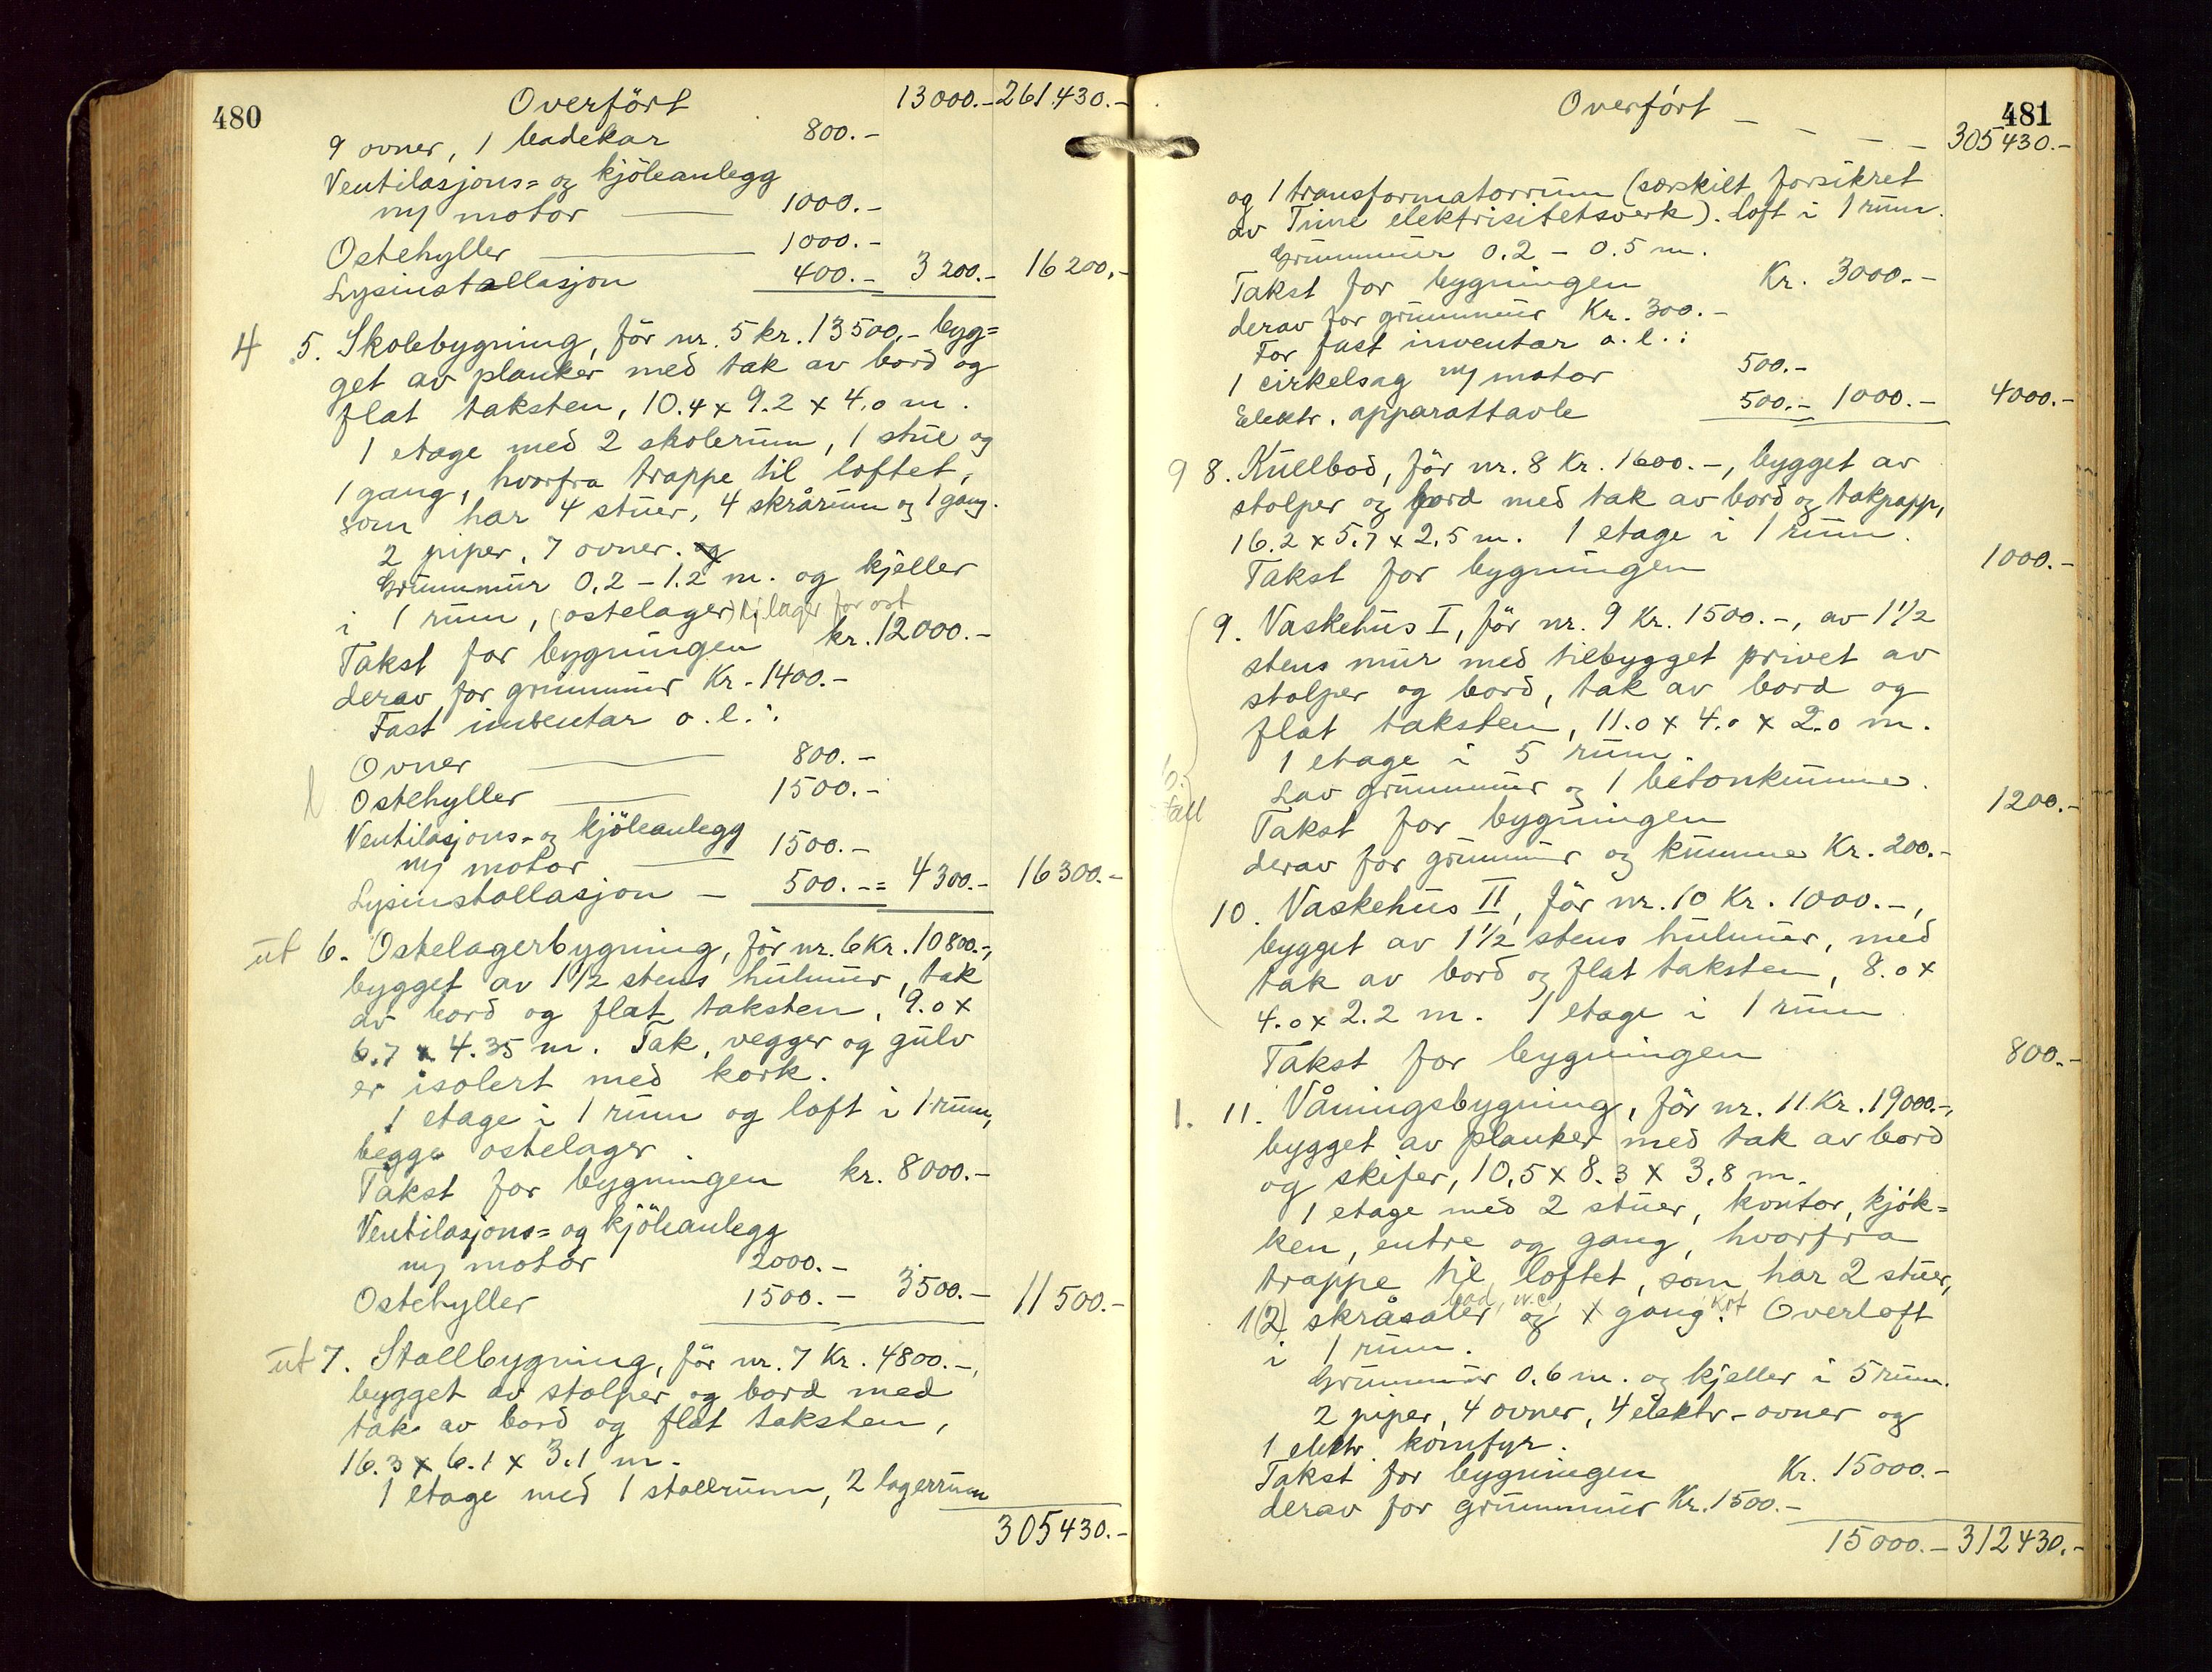 480
Overfört 13000.- 261430.-
9 ovner, 1 badekar 800.-
Ventilasjons= og kjöleanlegg
m/ motor 1000.-
Ostehyller 1000.-
Lysinstallasjon 400.- 3200.- 16200.-
4 5. Skolebygning, för nr. 5 kr. 13500.- byg=
get av planker med tak av bord og
flat taksten, 10.4 x 9.2 x 4.0 m.
1 etage med 2 skolerum, 1 stue og
1 gang, hvorfra trappe til loftet,
som har 4 stuer, 4 skrårum og 1 gang.
2 piper, 7 ovner. og
Grunnmur 0.2 - 1.2 m. og kjeller
i 1 rum, (ostelager) lager for ost
Takst for bygningen kr. 12000.-
derav for grunnmur Kr. 1400.-
Fast inventar o.l.:
Ovner 800.-
Ostehyller 1500.-
Ventilasjons- og kjöleanlegg
m/ motor 1500.-
Lysinstallasjon - 500.-= 4300.- 16300.-
ut 6. Ostelagerbygning, för nr. 6 Kr. 10800.-,
bygget av 1 1/2 stens hulmur, tak
av bord og flat taksten, 9.0 x
6.7 x 4.35 m. Tak, vegger og gulv
er isolert med kork.
1 etage i 1 rum og loft i 1 rum,
begge ostelager
Takst for bygningen kr. 8000.-
Ventilasjons= og kjöleanlegg
m/ motor 2000.-
Ostehyller 1500.- 3500.- 11500.-
ut 7. Stallbygning, för nr. 7 Kr. 4800.-,
bygget av stolper og bord med
tak av bord og flat taksten,
16.3 x 6.1 x 3.1 m.
1 etage med 1 stallrum, 2 lagerrum
305430.-
481
Overfört - - - - 305430.-
og 1 transformatorrum (særskilt forsikret
av Time elektrisitetsverk). Loft i 1 rum.
Grunnmur 0.2 - 0.5 m.
Takst for bygningen Kr. 3000.-
derav for grunnmur Kr. 300.-
For fast inventar o.l.:
1 cirkelsag m/ motor 500.-
Elektr. apparattavle 500.- 1000.- 4000.-
9 8. Kullbod, för nr. 8 Kr. 1600.-, bygget av
stolper og bord med tak av bord og takpapp,
16.2 x 5.7 x 2.5 m. 1 etage i 1 rum.
Takst for bygningen 1000.-
9. Vaskehus I, för nr. 9 Kr. 1500.-, av 1 1/2
stens mur med tilbygget privet av
stolper og bord, tak av bord og
flat taksten, 11.0 x 4.0 x 2.0 m.
1 etage i 5 rum.
Lav grunnmur og 1 betonkumme.
Takst for bygningen 1200.-
derav for grunnmur og kumme Kr. 200.-
10. Vaskehus II, för nr. 10 Kr. 1000.-,
bygget av 1 1/2 stens hulmur, med
tak av bord og flat taksten, 8.0 x
4.0 x 2.2 m. 1 etage i 1 rum
Takst for bygningen 800.-
1. 11. Våningsbygning, för nr. 11 Kr. 19000.-,
bygget av planker med tak av bord
og skifer, 10.5 x 8.3 x 3.8 m.
1 etage med 2 stuer, kontor, kjök=
ken, entre og gang, hvorfra
trappe til loftet, som har 2 stuer,
bad, w.c.
1 (2) skråsaler og x gang. Overloft
i 1 rum.
Grunnmur 0.6 m. og kjeller i 5 rum.
2 piper, 4 ovner, 4 elektr. ovner og
1 elektr. komfyr.
Takst for bygningen Kr. 15000.-
derav for grunnmur Kr. 1500.-
15000.- 312430.-